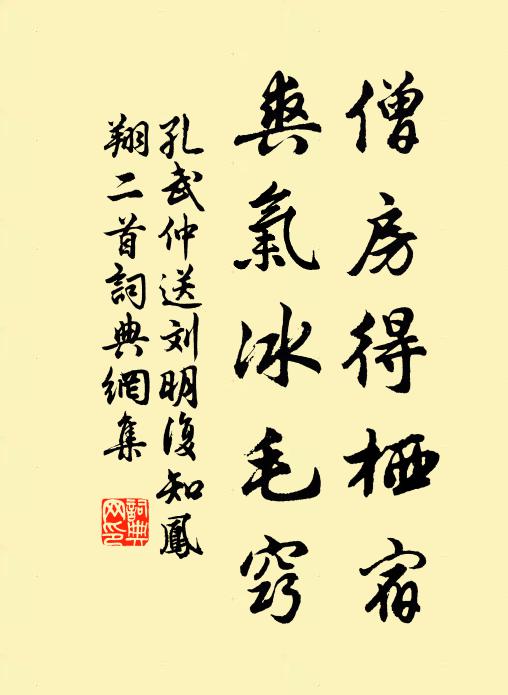 僧房得栖宿
爽氣冰毛竅
孔武仲送刘明復知鳳
翔二首詞典網集
詞典网印